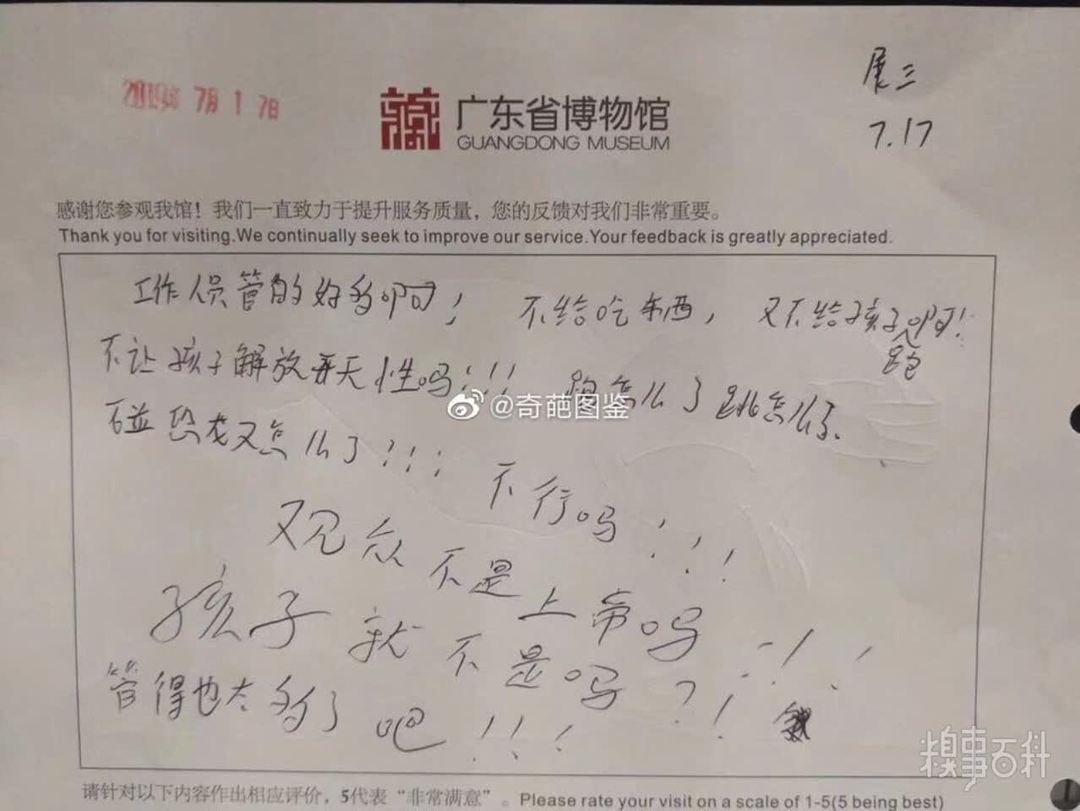 展三
2019年7月17日
7.17
广东省博物馆
GUANGDONG MUSEUM
感谢您参观我馆！我们一直致力于提升服务质量，您的反馈对我们非常重要。
Thank you for visiting.We continually seek to improve our service.Your feedback is greatly appreciated.
工作人员管的好多啊！不给吃东西，又不给孩子跑啊！
不让孩子解放天性吗！！！跑怎么了跳怎么了、
@奇葩图鉴
碰恐龙又怎么了！！！不行吗！！！
观众不是上帝吗！！
孩子就不是吗？！
管得也太多了吧！！！
糗事百科
请针对以下内容作出相应评价，5代表“非常满意”。Please rate your visit on a scale of 1-5(5 being best)